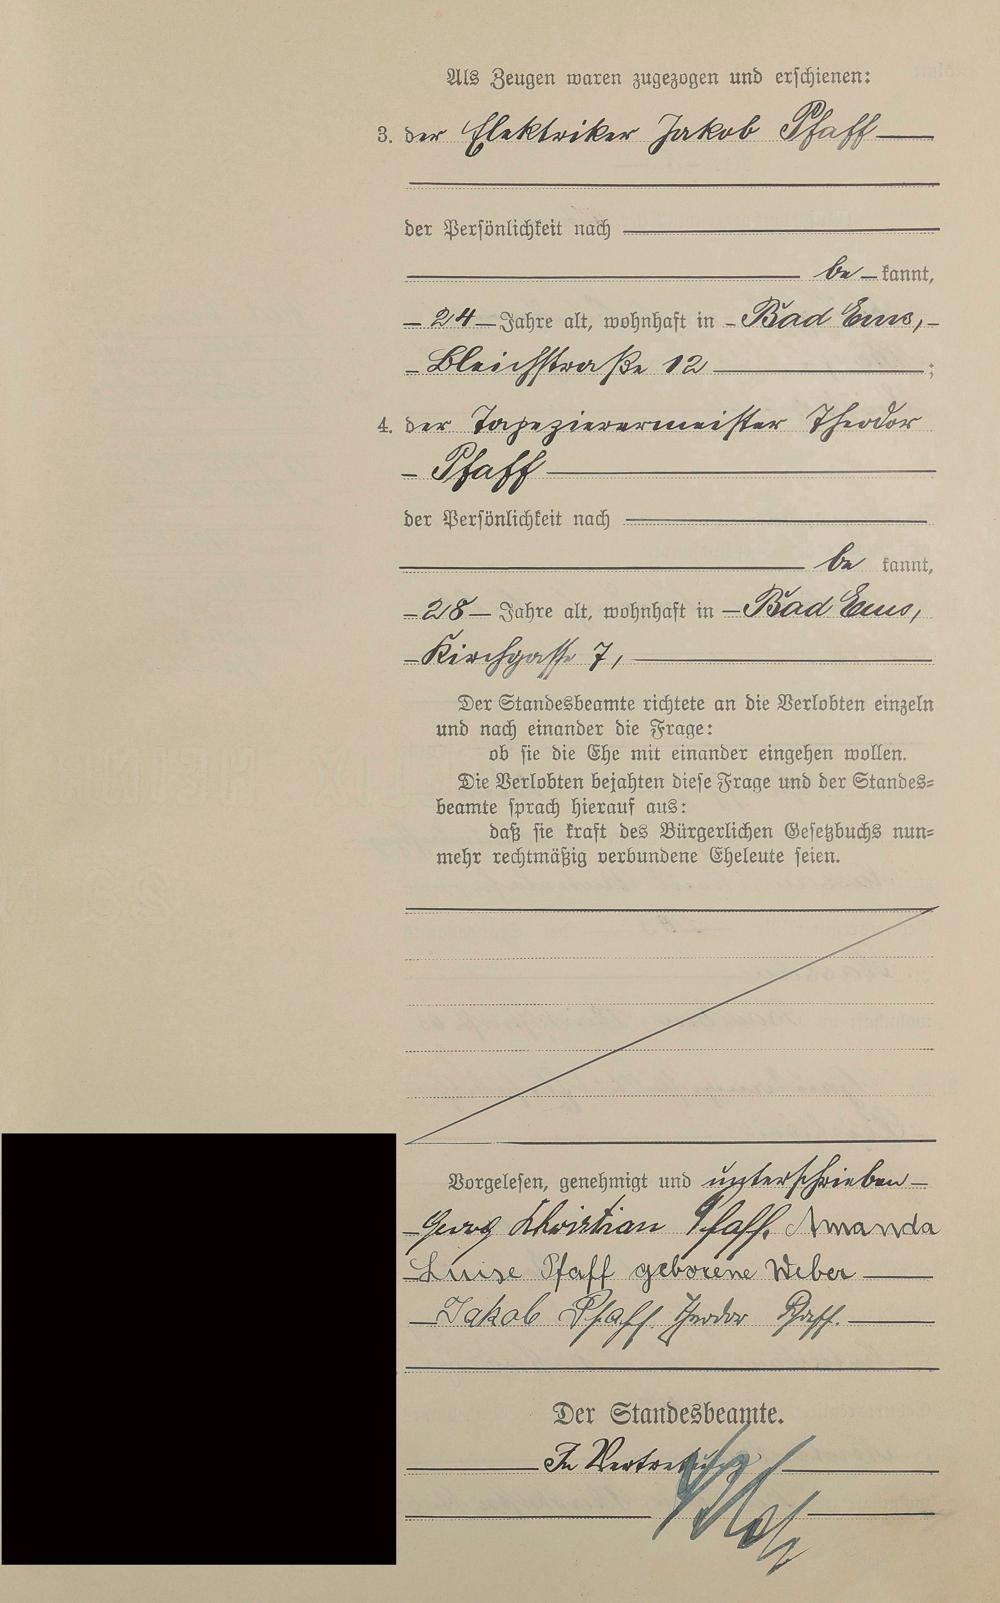 Als Zeugen waren zugezogen und erschienen:
3. der Elektriker Jakob Pfaff
der Persönlichkeit nach
be kannt,
24 Jahre alt, wohnhaft in Bad Ems,
Bleichstraße 12 ;
4. der Tapezierermeister Theodor
Pfaff
der Persönlichkeit nach
be kannt,
28 Jahre alt, wohnhaft in Bad Ems,
Kirchgasse 7,
Der Standesbeamte richtete an die Verlobten einzeln
und nach einander die Frage:
ob sie die Ehe mit einander eingehen wollen.
Die Verlobten bejahten diese Frage und der Standes=
beamte sprach hierauf aus:
daß sie kraft des Bürgerlichen Gesetzbuchs nun=
mehr rechtmäßig verbundene Eheleute seien.
Vorgelesen, genehmigt und unterschrieben
Georg Christian Pfaff. Amanda
Luise Pfaff geborene Weber
Jakob Pfaff Theodor Pfaff.
Der Standesbeamte.
In Vertretung